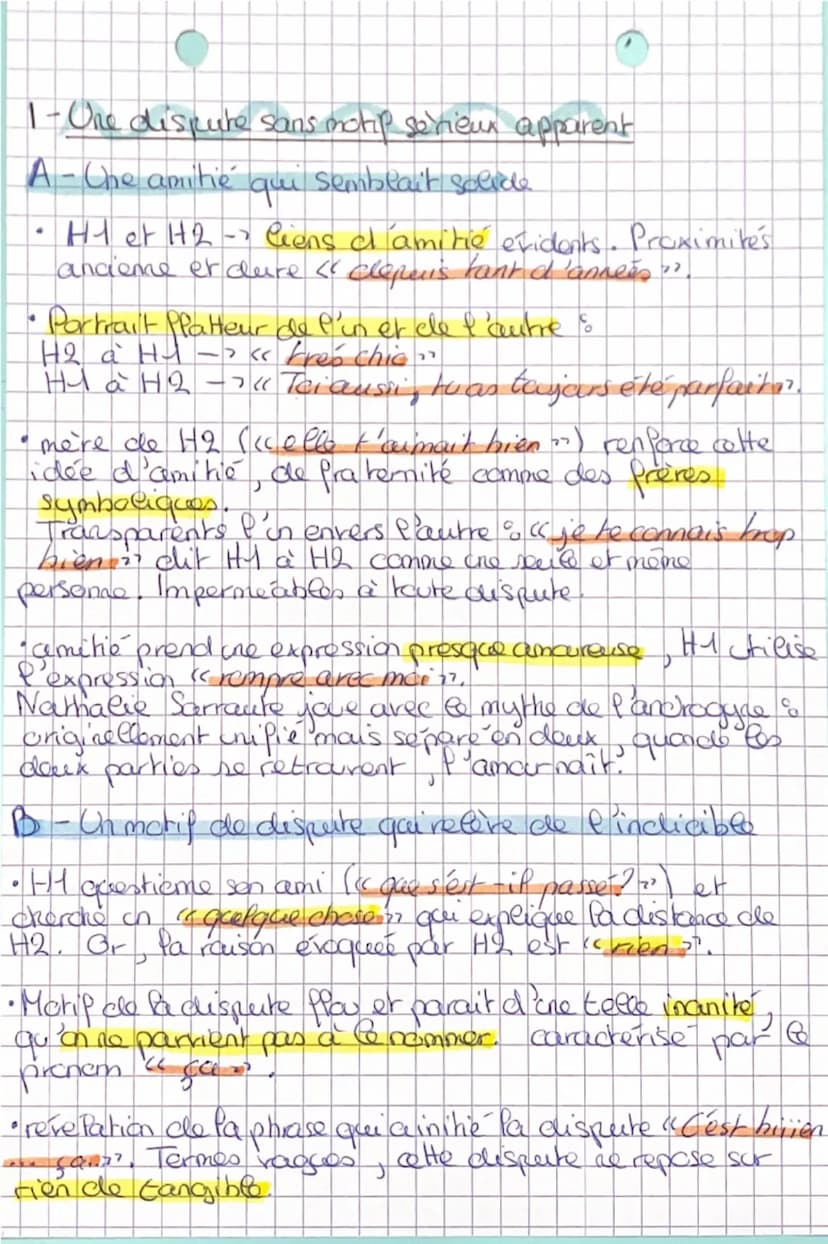 1 - Une dispute sans motif sérieux apparent
A - Une amitié qui semblait solide
• H1 et H2 -> liens d'amitié évidents. Proximités
ancienne et dure << depuis tant d'années >>.
• Portrait flatteur de l'un et de l'autre :
H2 à H1 -> << très chic >>
H1 à H2 -> << Toi aussi, tu as toujours été parfait >>.
• mère de H2 (<< elle t'aimait bien >>) renforce cette
idée d'amitié, de fraternité comme des frères
symboliques.
Transparents l'un envers l'autre : << je te connais trop
bien >> dit H1 à H2 comme une seule et même
personne. Imperméables à toute dispute.
• amitié prend une expression presque amoureuse, H1 utilise
l'expression << rompre avec moi >>.
Nathalie Sarraute joue avec le mythe de l'androgyne :
originellement unifié mais séparé en deux, quand les
deux parties se retrouvent, l'amour naît.
B - Un motif de dispute qui relève de l'indicible
• H1 questionne son ami (<< que s'est-il passé ? >>) et
cherche un << quelque chose >> qui explique la distance de
H2. Or, la raison évoquée par H2 est << rien >>.
• Motif de la dispute flou et parait d'une telle inanité,
qu'on ne parvient pas à le nommer. caractérisé par le
pronom << ça >>.
• révélation de la phrase qui a initié la dispute << C'est biiien
... ça... >>. Termes vagues, cette dispute ne repose sur
rien de tangible.